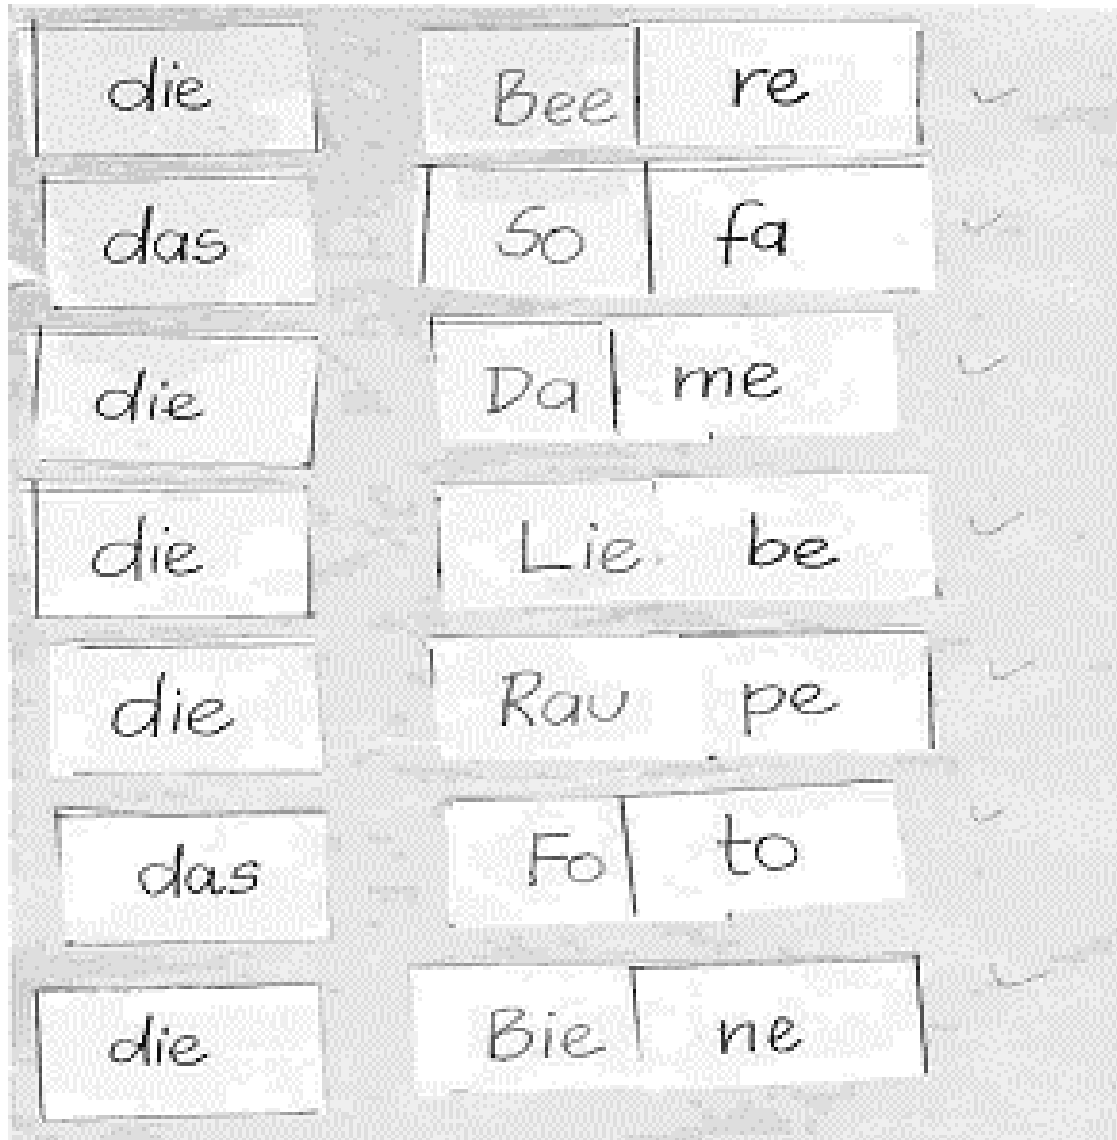 die Bee re
das So fa
die Da me
die Lie be
die Rau pe
das Fo to
die Bie ne